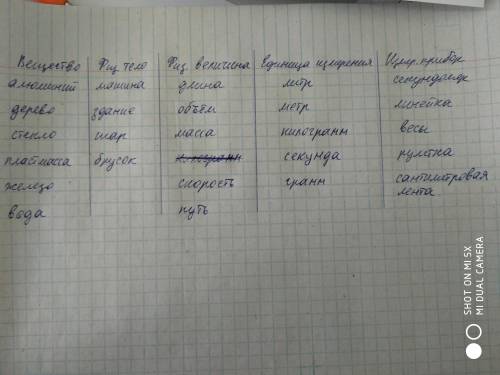 Вещество Физ. тело Физ. величина Единица измерения Измер. прибор
алюминий машина длина литр секундомер
дерево здание объём метр линейка
стекло шар масса килограмм весы
пластмасса брусок килограмм секунда рулетка
железо скорость грамм сантиметровая лента
вода путь
SHOT ON MI 5X
MI DUAL CAMERA